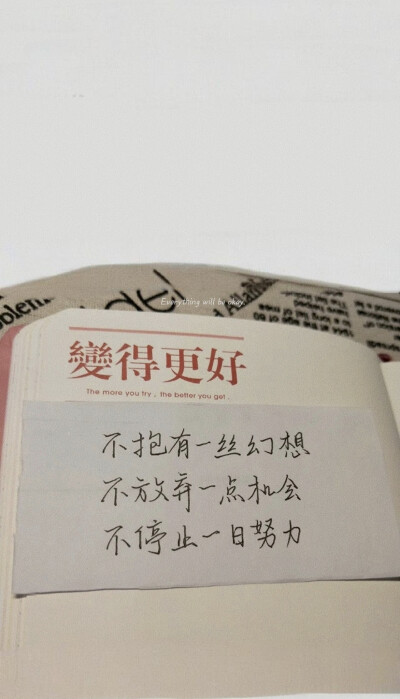 Everything will be okay.
變得更好
The more you try , the better you get .
不抱有一丝幻想
不放弃一点机会
不停止一日努力